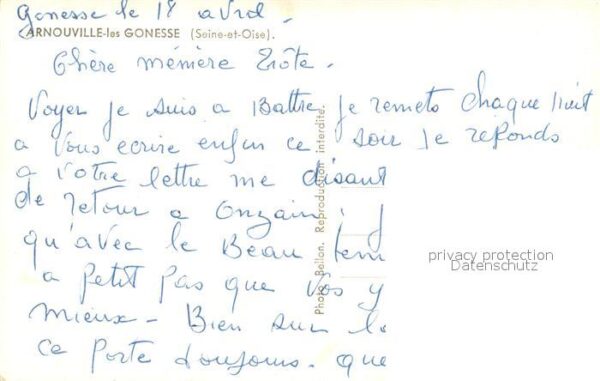 Gonesse le 18 avril.
ARNOUVILLE-les GONESSE (Seine-et-Oise).
Chère mémère Zrôte.
Voyer je suis a Battre, je remets chaque
a vous ecrire enfin ce soir je reponds
a votre lettre me disant
de retour a Onzain ; j
qu'avec le Beau tem
a petit pas que vos y
mieux - Bien sur le
ce porte toujours. que
Photo Bollon. Reproduction interdite.
privacy protection
Datenschutz